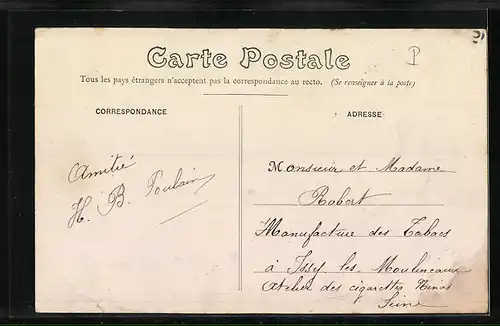 Carte Postale
P
Tous les pays étrangers n'acceptent pas la correspondance au recto. (Se renseigner à la poste)
CORRESPONDANCE
ADRESSE
Amitié
H. B. Poulain
Monsieur et Madame
Robert
Manufacture des Tabacs
à Issy les Moulineaux
Atelier des cigarettes Ninas
Seine